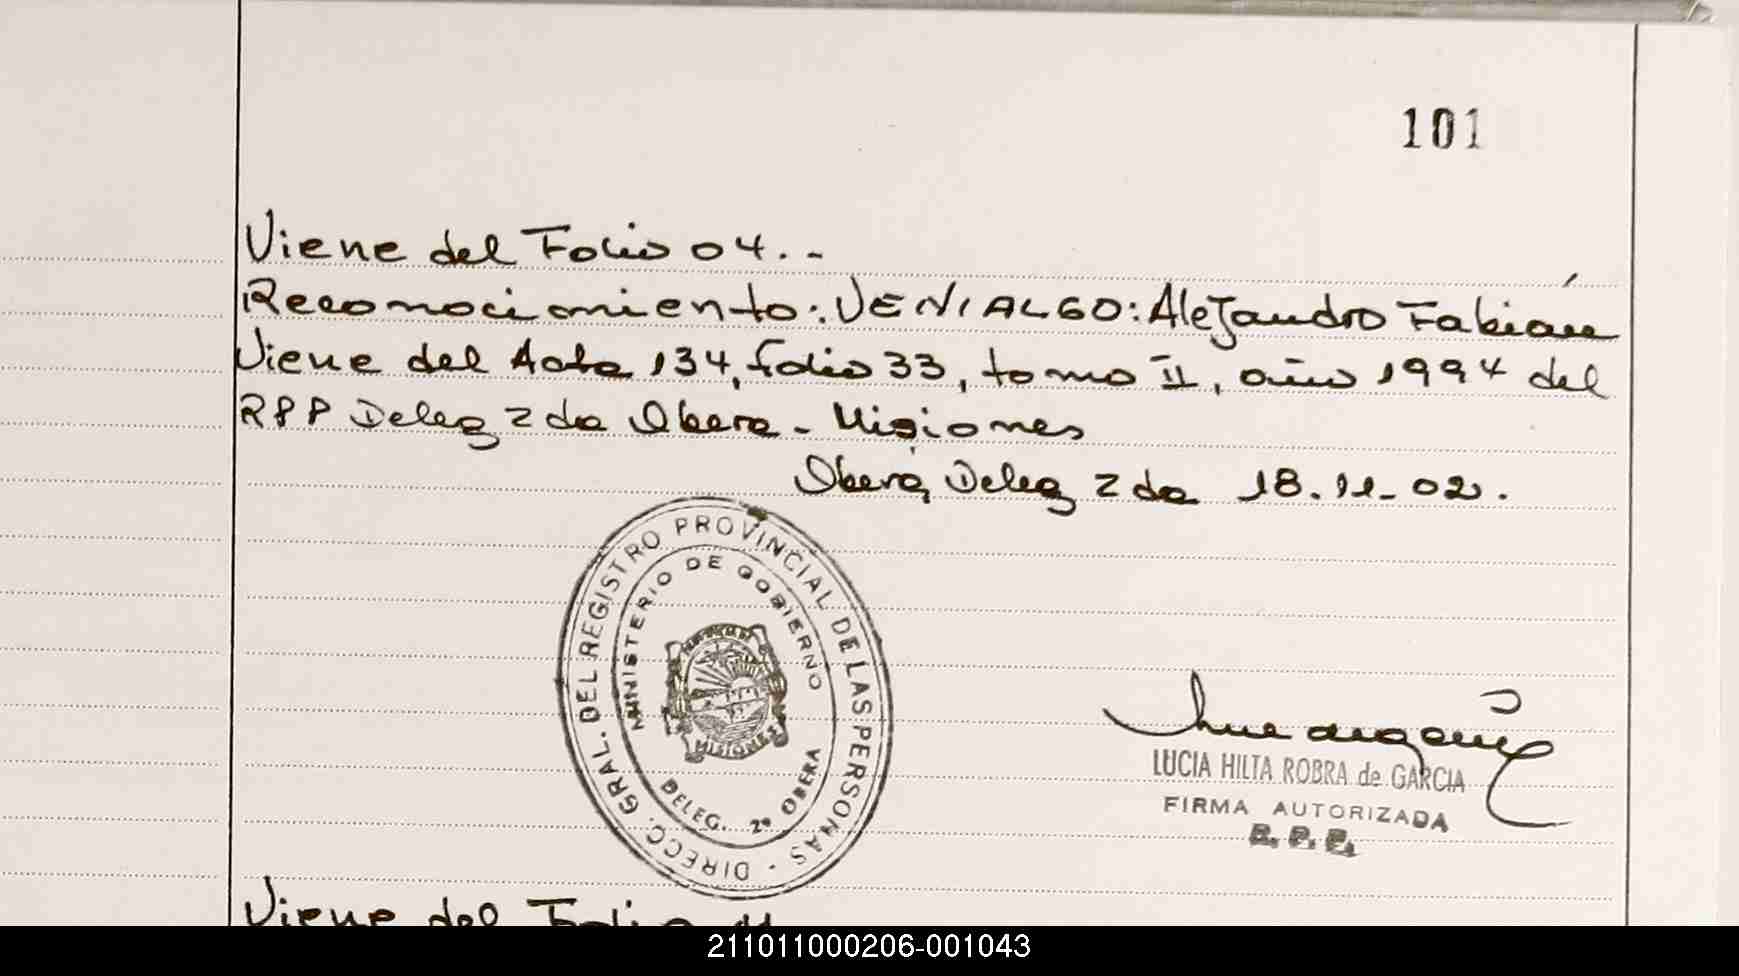 101
Viene del Folio 04.-
Reconocimiento: VENIALGO: Alejandro Fabián
Viene del Acta 134, folio 33, tomo II, año 1994 del
RPP Deleg 2da Obera - Misiones
Oberá, Deleg 2da 18.11-02.
DIRECC. GRAL. DEL REGISTRO PROVINCIAL DE LAS PERSONAS -
MINISTERIO DE GOBIERNO
MISIONES
DELEG. 2º OBERA
LUCIA HILTA ROBRA de GARCIA
FIRMA AUTORIZADA
R. P. P.
Viene del Folio 11
211011000206-001043